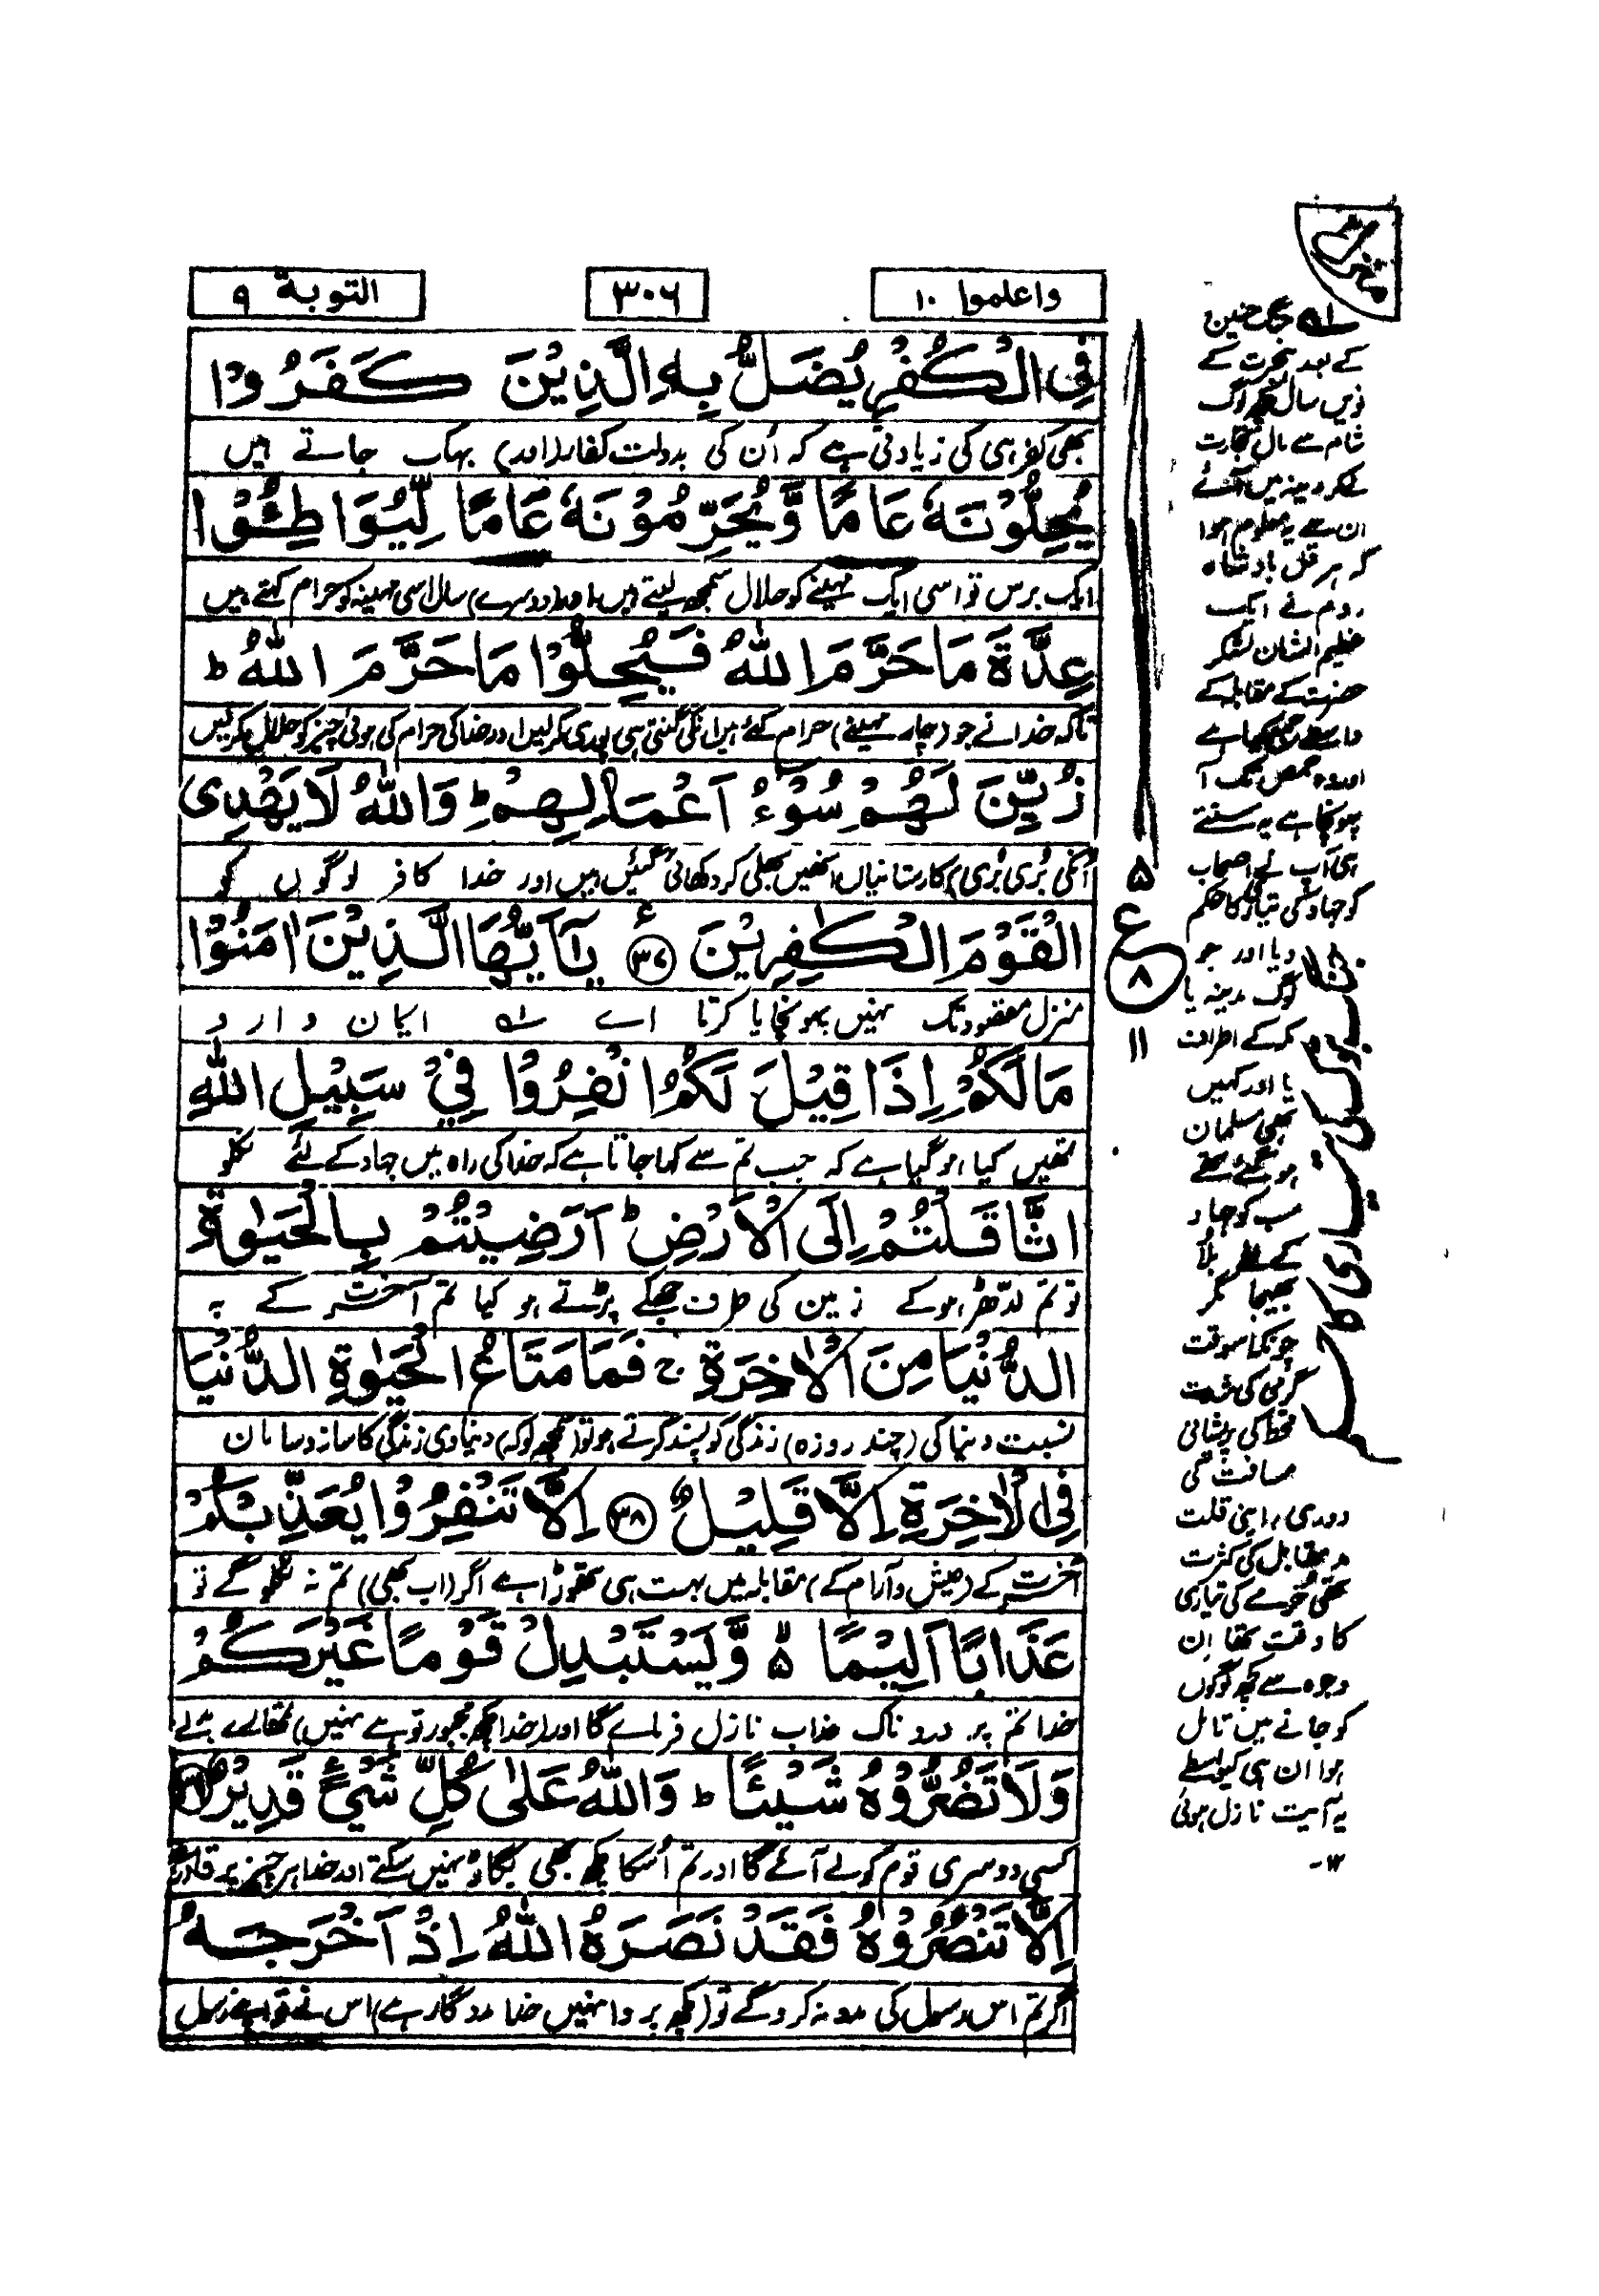 واعلموا ۱۰
۳۰۶
التوبة ۹
فِى الْكُفْرِ يُضَلُّ بِهِ الَّذِيْنَ كَفَرُوْا
بھی کفر ہی کی زیادتی ہے کہ اُن کی بدولت کفار (اور) بہک جاتے ہیں
يُحِلُّوْنَهٗ عَامًا وَّيُحَرِّمُوْنَهٗ عَامًا لِّيُوَاطِـُٔوْا
ایک برس تو اسی ایک مہینے کو حلال سمجھ لیتے ہیں اور (دوسرے) سال اسی مہینہ کو حرام کہتے ہیں
عِدَّةَ مَا حَرَّمَ اللّٰهُ فَيُحِلُّوْا مَا حَرَّمَ اللّٰهُ ط
تاکہ خدا نے جو (چار مہینے) حرام کئے ہیں انکی گنتی ہی پوری کر لیں اور خدا کی حرام کی ہوئی چیز کو حلال کر لیں
زُيِّنَ لَهُمْ سُوْٓءُ اَعْمَالِهِمْ ط وَاللّٰهُ لَا يَهْدِى
اُنکی بُری بُری کارستانیاں انھیں بھلی کر دکھائی گئیں ہیں اور خدا کافر لوگوں کو
الْقَوْمَ الْكٰفِرِيْنَ ۳۷ ع يٰٓاَيُّهَا الَّذِيْنَ اٰمَنُوْا
منزل مقصود تک نہیں پہونچایا کرتا اے ایمان دارو
مَا لَكُمْ اِذَا قِيْلَ لَكُمُ انْفِرُوْا فِيْ سَبِيْلِ اللّٰهِ
تمھیں کیا ہو گیا ہے کہ جب تم سے کہا جاتا ہے کہ خدا کی راہ میں جہاد کے لئے نکلو
اثَّاقَلْتُمْ اِلَى الْاَرْضِ ط اَرَضِيْتُمْ بِالْحَيٰوةِ
تو تم لدّھڑ ہو کے زمین کی طرف جھکے پڑتے ہو کیا تم آخرت کے بہ
الدُّنْيَا مِنَ الْاٰخِرَةِ ج فَمَا مَتَاعُ الْحَيٰوةِ الدُّنْيَا
نسبت دنیا کی (چند روزہ) زندگی کو پسند کرتے ہو تو (سمجھ لو کہ) دنیاوی زندگی کا ساز و سامان
فِى الْاٰخِرَةِ اِلَّا قَلِيْلٌ ۳۸ اِلَّا تَنْفِرُوْا يُعَذِّبْكُمْ
آخرت کے (عیش و آرام کے) مقابلہ میں بہت ہی تھوڑا ہے اگر (اب بھی) تم نہ نکلو گے تو
عَذَابًا اَلِيْمًا ۵ وَّيَسْتَبْدِلْ قَوْمًا غَيْرَكُمْ
خدا تم پر درد ناک عذاب نازل فرمائے گا اور (خدا کچھ مجبور تو ہے نہیں) تمھارے بدلے
وَلَا تَضُرُّوْهُ شَيْـًٔا ط وَاللّٰهُ عَلٰى كُلِّ شَىْءٍ قَدِيْرٌ
کسی دوسری قوم کو لے آئے گا اور تم اُسکا کچھ بھی بگاڑ نہیں سکتے اور خدا ہر چیز پر قادر ہے
اِلَّا تَنْصُرُوْهُ فَقَدْ نَصَرَهُ اللّٰهُ اِذْ اَخْرَجَهُ
اگر تم اس رسول کی مدد نہ کرو گے تو (کچھ پروا نہیں خدا مددگار ہے) اس نے تو اپنے رسول
۵
ع
۸
۱۱
جنگ حنین
کے بعد ہجرت کے
نویں سال کچھ لوگ
شام سے مال تجارت
لیکر مدینہ میں آئے
ان سے یہ معلوم ہوا
کہ ہرقل بادشاہ
روم نے ایک
عظیم الشان لشکر
حضرت کے مقابلہ کے
واسطے بھیجا ہے
اور وہ حمص تک آ
پہونچا ہے یہ سنتے
ہی آپ نے اصحاب
کو جہاد کی تیاری کا حکم
دیا اور جو
لوگ مدینہ یا
مکہ کے اطراف
یا اور کہیں
بھی مسلمان
ہو گئے تھے
سب کو جہاد
کے لئے بلا
بھیجا مگر
چونکہ اسوقت
گرمی کی شدت
قحط کی پریشانی
مسافت کی
دوری، اپنی قلت
مدمقابل کی کثرت
تھی خرمے کی تیاری
کا وقت تھا ان
وجوہ سے کچھ لوگوں
کو جانے میں تامل
ہوا ان ہی کیواسطے
یہ آیت نازل ہوئی
۱۲-
جنگ تبوک کی تیاری کا حکم